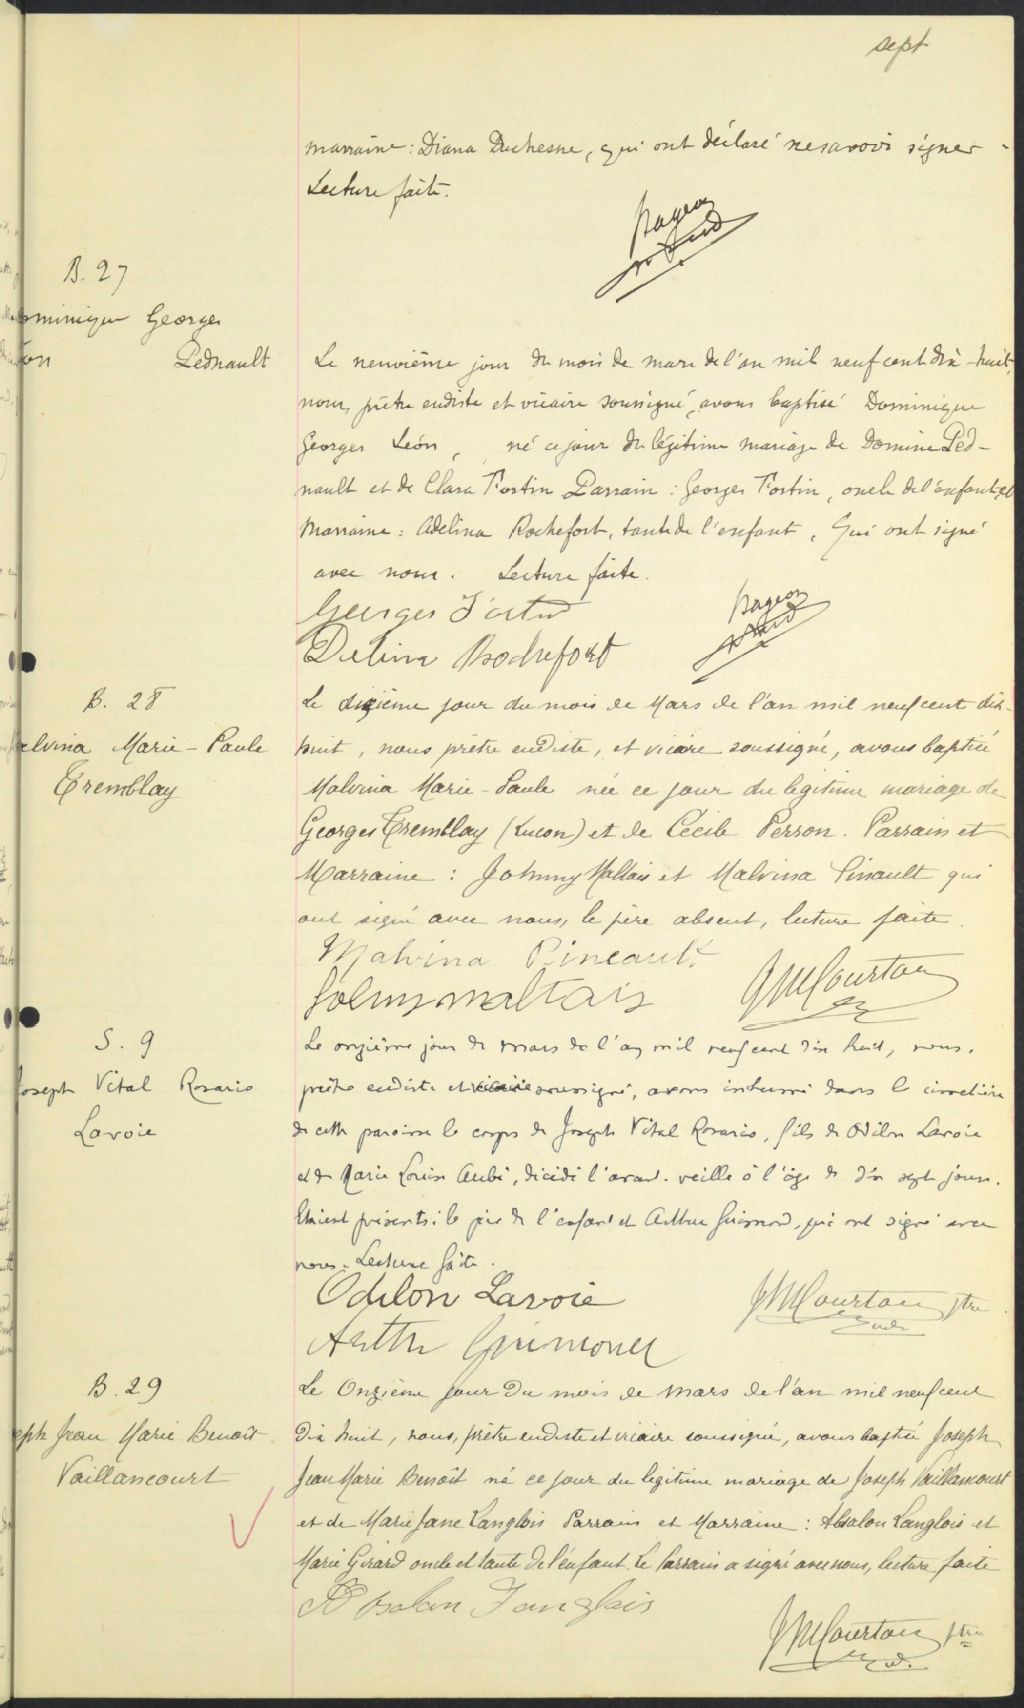 sept
marraine: Diana Duchesne, qui ont déclaré ne savoir signer
Lecture faite.
B. 27
ominique Georges
on Pednault
Le neuvième jour du mois de mars de l'an mil neuf cent dix-huit,
nous, prêtre eudiste et vicaire soussigné, avons baptisé Dominique
Georges Léon, né ce jour du légitime mariage de Domine Ped-
nault et de Clara Fortin Parrain: Georges Fortin, oncle de l'enfant, et
Marraine: Adelina Rochefort, tante de l'enfant, Qui ont signé
avec nous. Lecture faite.
Georges Fortin
Delina Rochefort
B. 28
alvina Marie-Paule
Tremblay
Le dixième jour du mois de Mars de l'an mil neuf cent dix-
huit, nous prêtre eudiste, et vicaire soussigné, avons baptisé
Malvina Marie-Paule née ce jour du légitime mariage de
Georges Tremblay (Lucon) et de Cécile Perron. Parrain et
Marraine: Johnny Maltais et Malvina Pinault qui
ont signé avec nous, le père absent, lecture faite.
Malvina Pineault
Johny maltais
JM Courtois
S. 9
Joseph Vital Rosario
Lavoie
Le onzième jour de mars de l'an mil neuf cent dix huit, nous,
prêtre eudiste et vicaire soussigné, avons inhumé dans le cimetière
de cette paroisse le corps de Joseph Vital Rosario, fils de Odilon Lavoie
et de Marie Louise Aubé, décédé l'avant-veille à l'âge de dix sept jours.
Etaient présents: le père de l'enfant et Arthur Guimond, qui ont signé avec
nous. Lecture faite.
Odilon Lavoie
JM Courtois ptre
Arthr Guimond
B. 29
eph Jean Marie Benoît
Vaillancourt
Le Onzième jour du mois de mars de l'an mil neuf cent
dix huit, nous, prêtre eudiste et vicaire soussigné, avons baptisé Joseph
Jean Marie Benoît né ce jour du légitime mariage de Joseph Vaillancourt
et de Marie Jane Langlois Parrain et Marraine: Absalon Langlois et
Marie Girard oncle et tante de l'enfant. Le Parrain a signé avec nous, lecture faite
Absalon Langlais
JM Courtois ptre